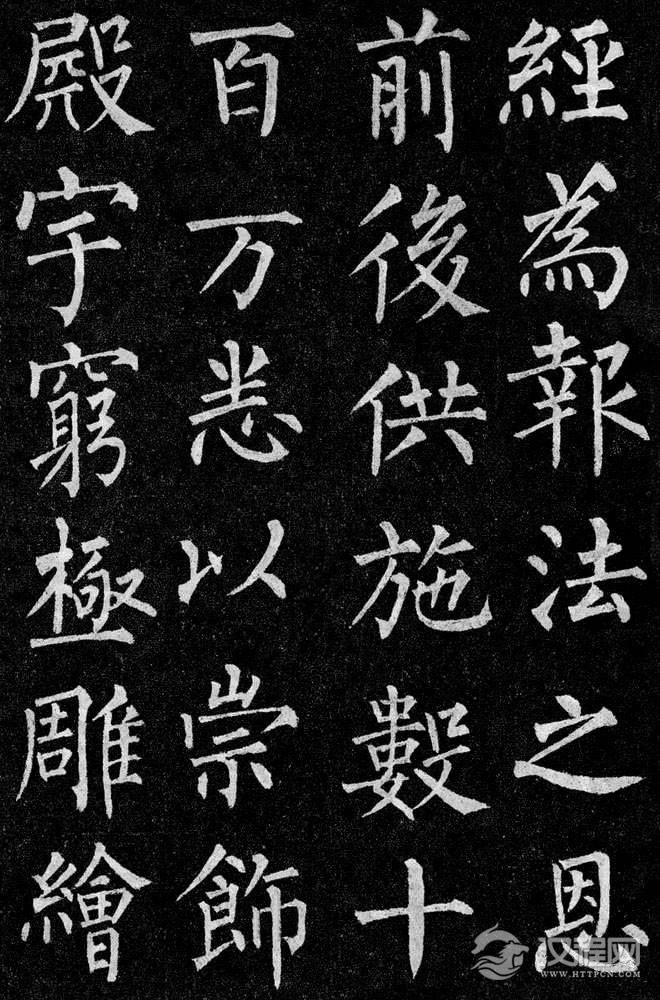 經為報法之恩
前後供施數十
百万悉以崇飾
殿宇窮極雕繪
汉程网
WWW.HTTPCN.COM